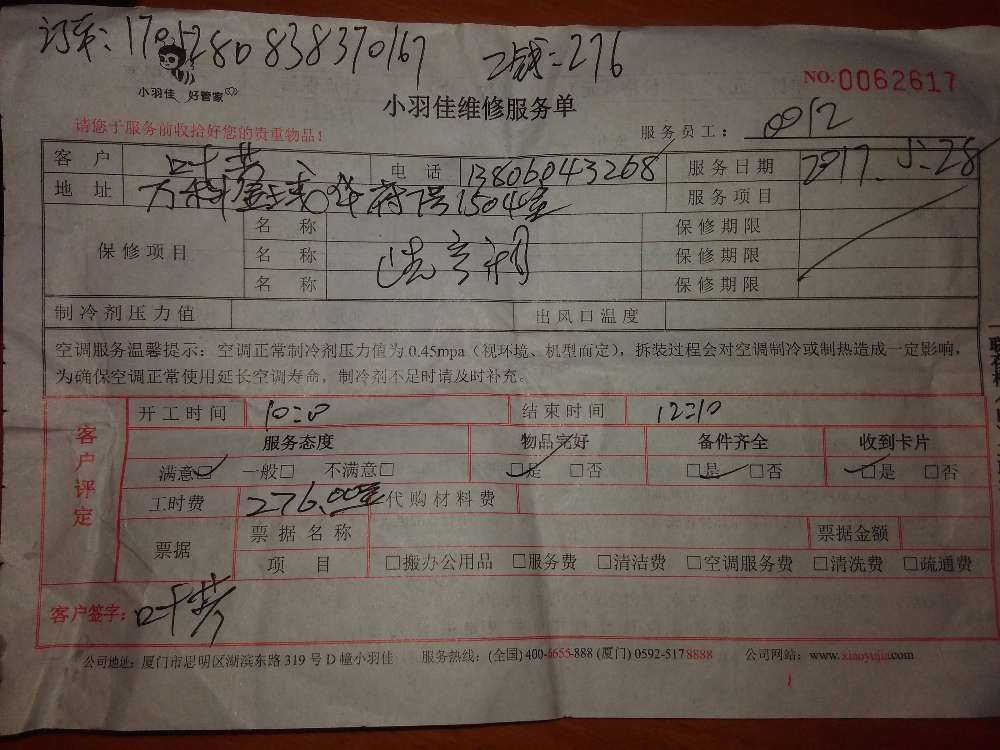 订单:
276
NO.0062617
小羽佳 好管家
小羽佳维修服务单
请您于服务前收拾好您的贵重物品!
服务员工: 0012
客户 叶芳 电话 13806043268 服务日期 2017.5.28
地址 1504室 服务项目
保修项目 名称 保修期限
名称 保修期限
名称 保修期限
制冷剂压力值 出风口温度
空调服务温馨提示:空调正常制冷剂压力值为0.45mpa(视环境、机型而定),拆装过程会对空调制冷或制热造成一定影响,
为确保空调正常使用延长空调寿命,制冷剂不足时请及时补充。
客户评定
开工时间 结束时间 12:10
服务态度 物品完好 备件齐全 收到卡片
满意☑ 一般□ 不满意□ ☑是 □否 ☑是 □否 ☑是 □否
工时费 276.00元 代购材料费
票据 票据名称 票据金额
项目 □搬办公用品 □服务费 □清洁费 □空调服务费 □清洗费 □疏通费
客户签字: 叶芳
公司地址:厦门市思明区湖滨东路319号D幢小羽佳 服务热线:(全国)400-6655-888 (厦门) 0592-5178888 公司网站:www.xiaoyujia.com